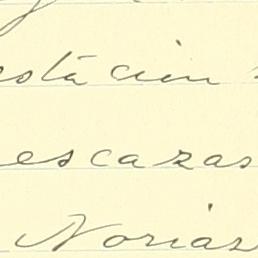 estación
escazas
Norias